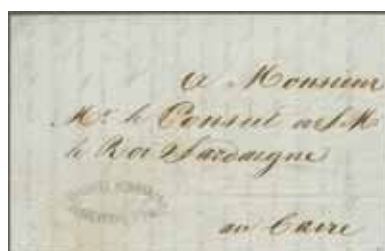 a Monsieur
Mr. le Consul de S. M.
le Roi Sardaigne
au Caire